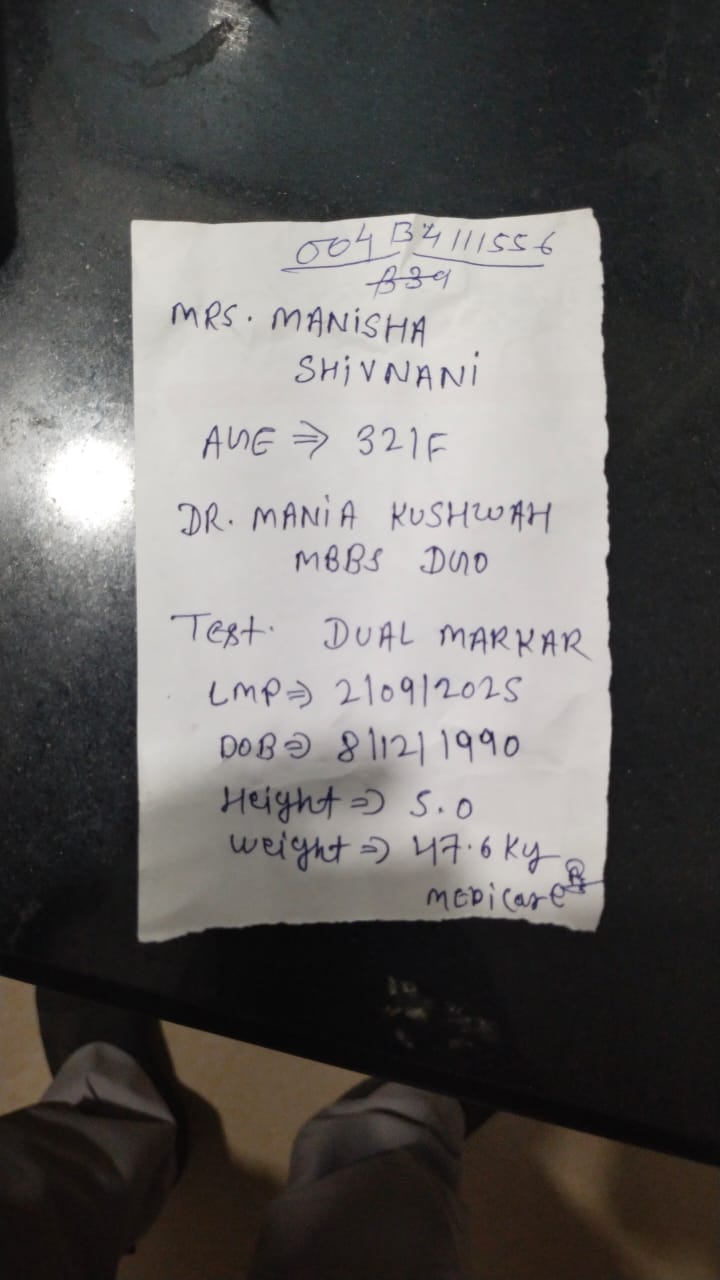 004 B4111556
B39
MRS. MANISHA
SHIVNANI
AGE ⇒ 32/F
DR. MANIA KUSHWAH
MBBS DGO
Test. DUAL MARKAR
LMP ⇒ 2/09/2025
DOB ⇒ 8/12/1990
Height ⇒ 5.0
Weight ⇒ 47.6 Kg
MEDICare